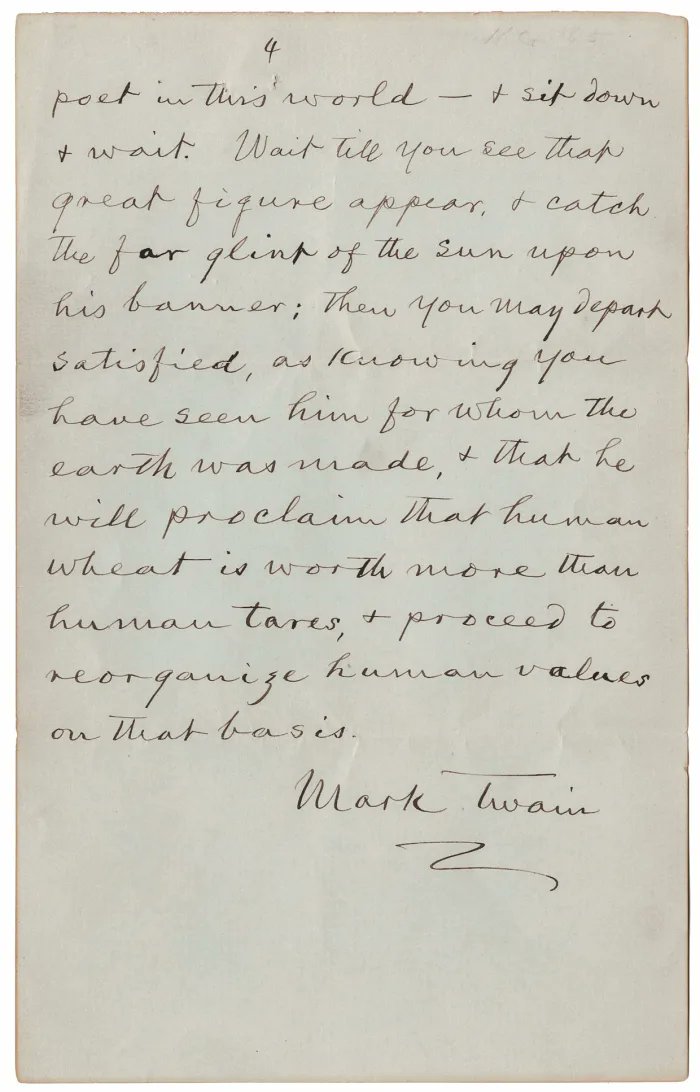 4
poet in this world — & sit down
& wait. Wait till you see that
great figure appear, & catch
the far glint of the sun upon
his banner; then you may depart
satisfied, as knowing you
have seen him for whom the
earth was made, & that he
will proclaim that human
wheat is worth more than
human tares, & proceed to
reorganize human values
on that basis.
Mark Twain